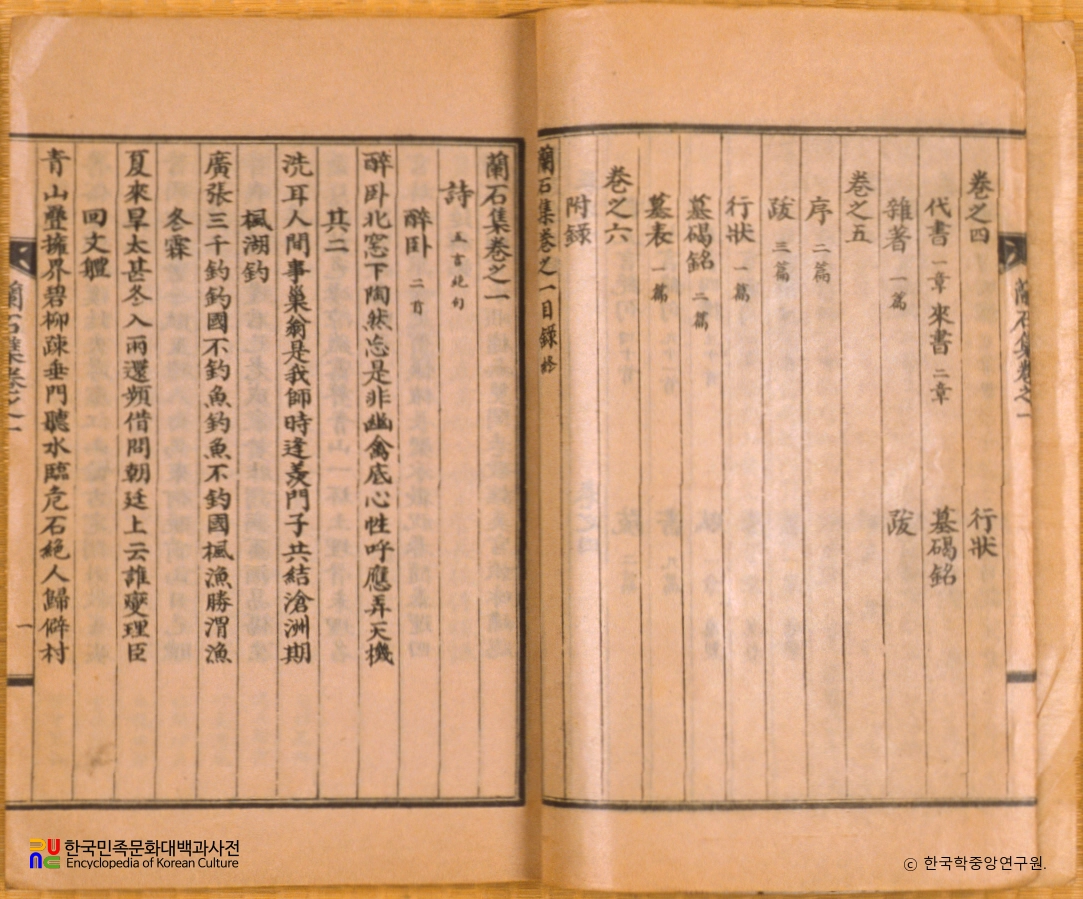 蘭石集卷之一
卷之四
代書 一章 來書 二章
雜著 一篇
卷之五
序 二篇
跋 三篇
行狀 一篇
墓碣銘 二篇
墓表 一篇
卷之六
附錄
行狀
墓碣銘
跋
蘭石集卷之一目錄終
蘭石集卷之一
詩 五言絶句
醉卧 二首
醉卧北窓下陶然忘是非幽禽底心性呼應弄天機
其二
洗耳人間事巢翁是我師時逢羨門子共結滄洲期
楓湖釣
廣張三千釣釣國不釣魚釣魚不釣國楓漁勝渭漁
冬霖
夏來旱太甚冬入雨還頻借問朝廷上云誰燮理臣
回文體
青山疊擁界碧柳疎垂門聽水臨危石絶人歸僻村
蘭石集卷之一
一
한국민족문화대백과사전
Encyclopedia of Korean Culture
© 한국학중앙연구원.